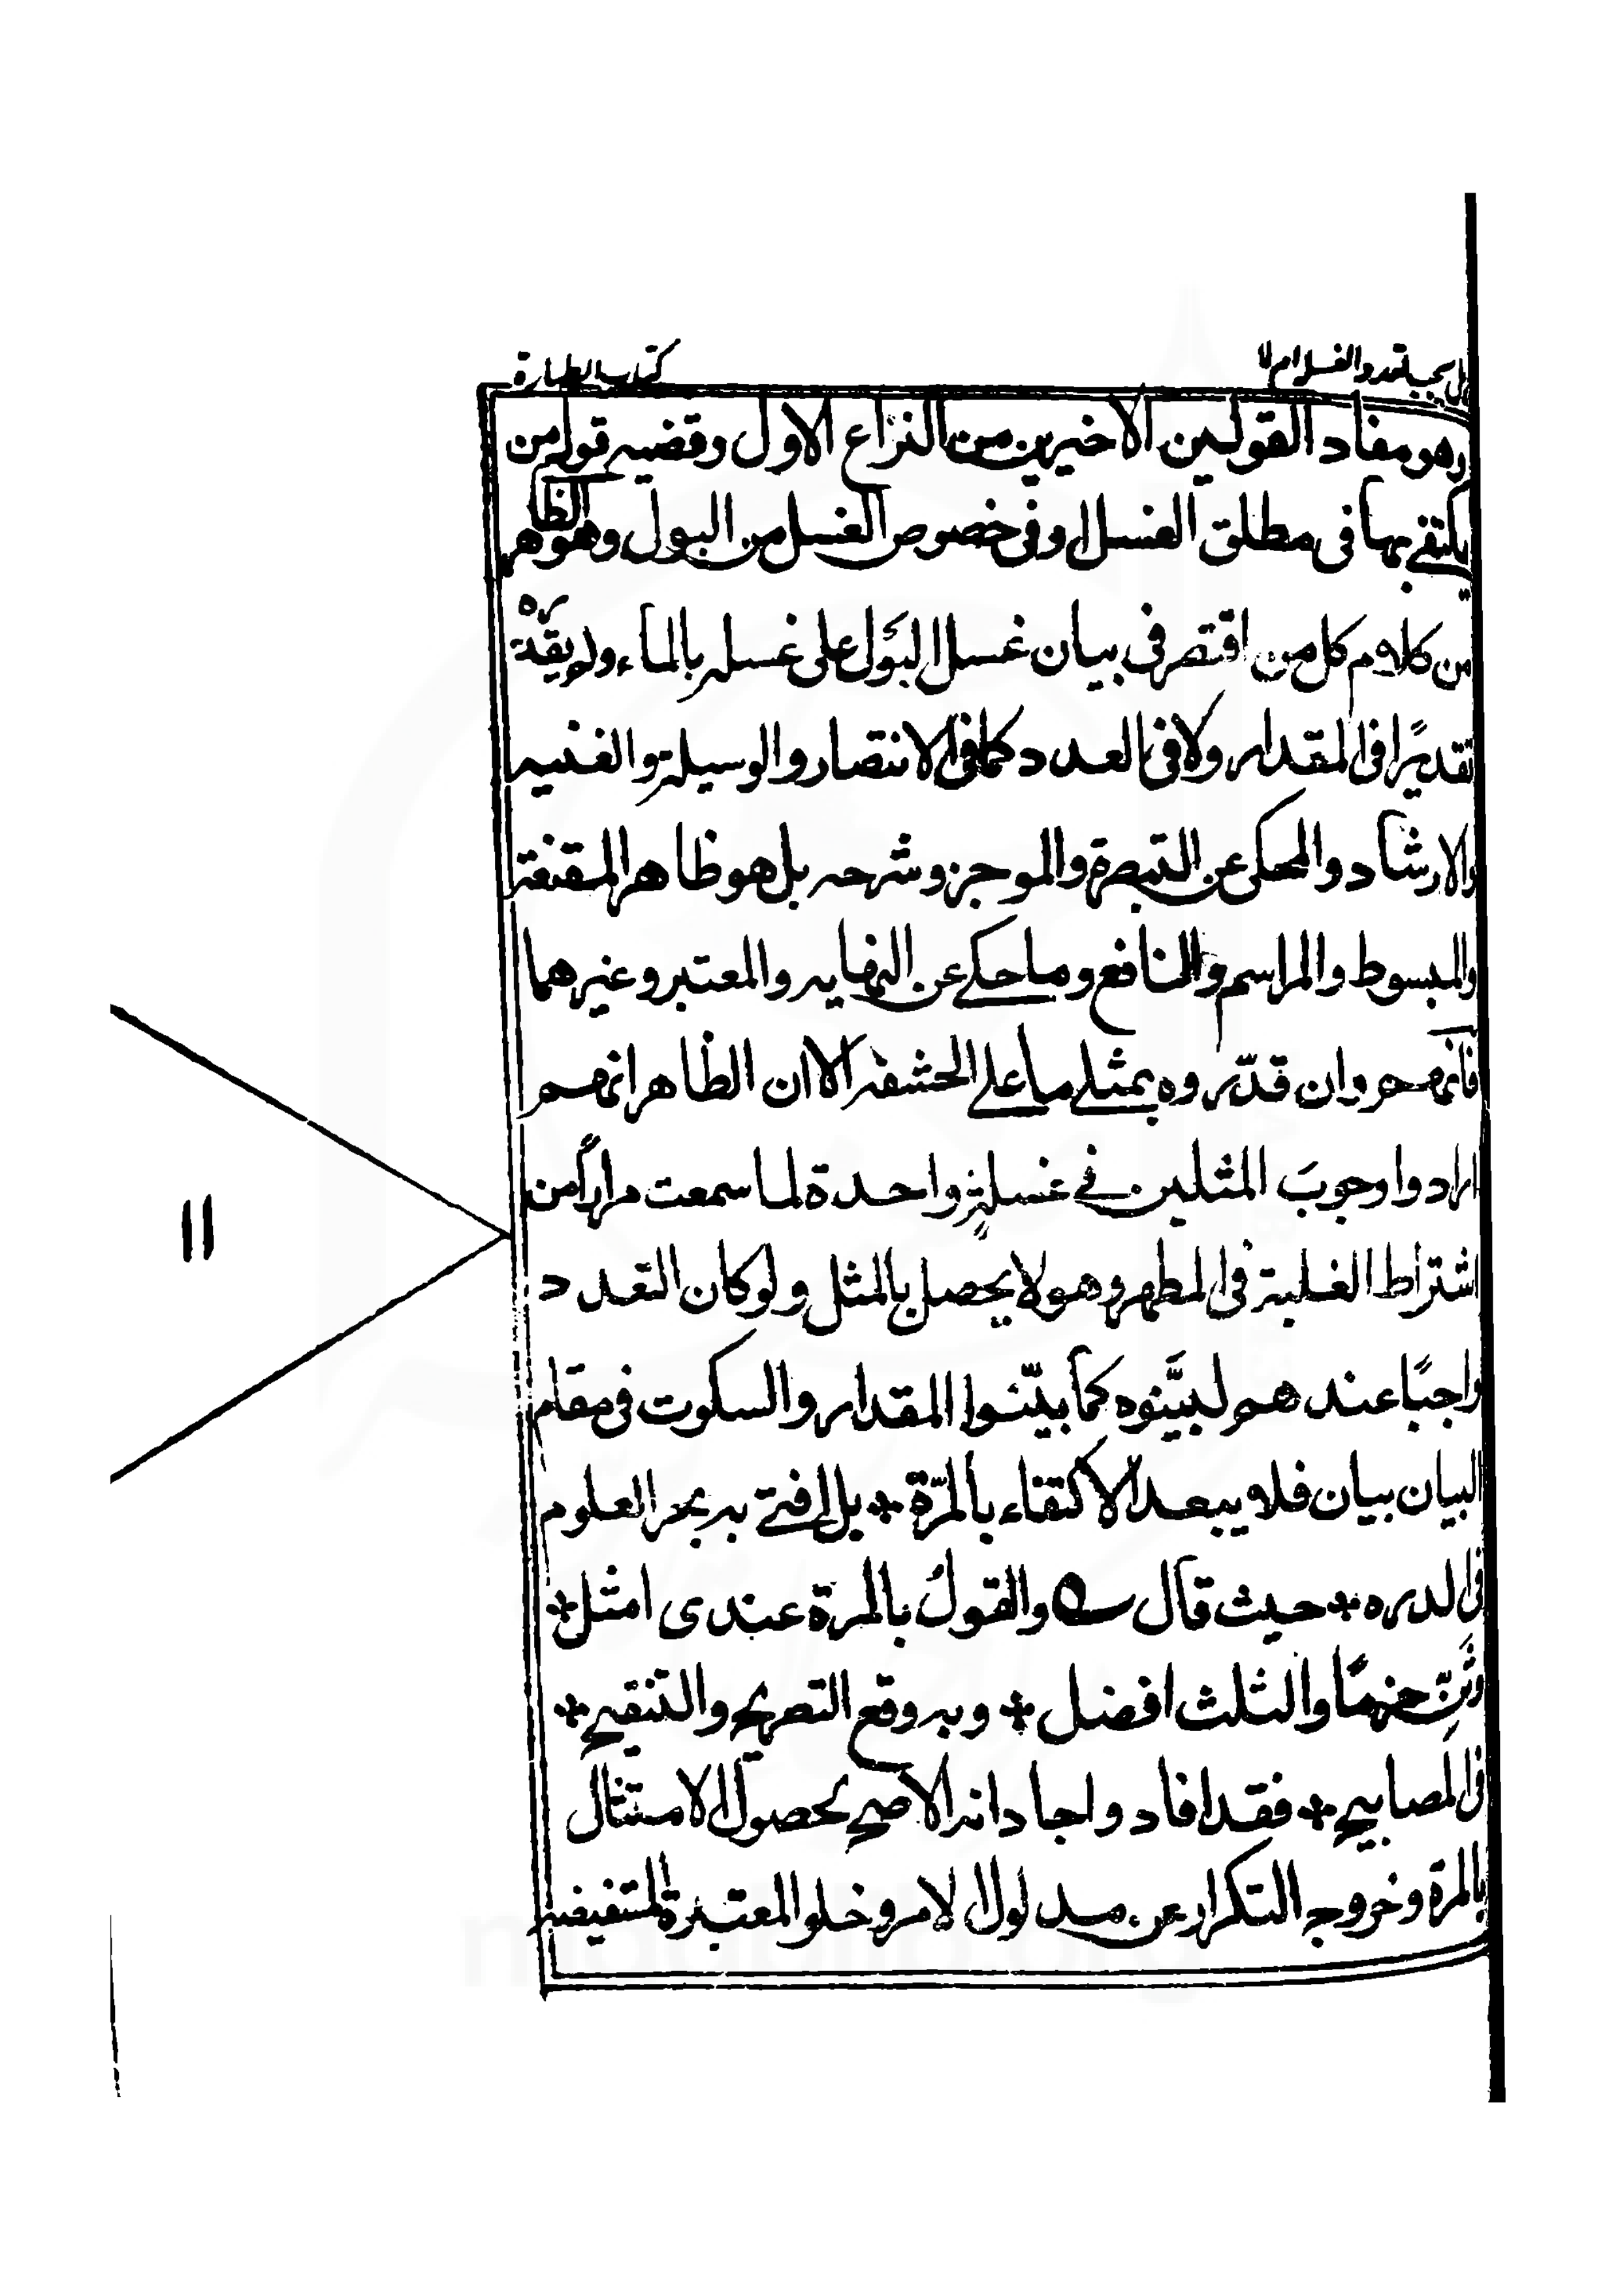 هل يجب تعدد الغسل ام لا
كتاب الطهارة
وهو مفاد القولين الاخيرين من النزاع الاول وقضيه قول من
يكتفے بها فى مطلق الغسل او فى خصوص الغسل من البول وهو الظاهر
من كلام كل من اقتصر فى بيان غسل البَول على غسله بالماء ولم يقدّره
تقديرًا فى المقدار ولا فى العدد كما فى الانتصار والوسيلة والغنيه
والارشاد والمحكى عن التبصرة والموجز وشرحه بل هو ظاهر المقنعة
والمبسوط والمراسم والنافع وما حكے عن النهايه والمعتبر وغيرهما
فانهم وان قدّروه بمثلے ما علے الحشفه الا ان الظاهر انهم
ارادوا وجوبَ المثلين فے غسلةٍ واحدة لما سمعت مرارًا من
اشتراط الغلبة فى المطهر وهو لا يحصل بالمثل ولو كان التعدد
واجبًا عندهم لبيَّنوه كما بيّنوا المقدار والسكوت فى مقام
البيان بيان فلا يبعد الاكتفاء بالمرّة * بل افتے به بحر العلوم
فى الدره * حيث قال والقولُ بالمرة عندى امثل *
وثَنِّ حتمًا والثلث افضل * وبه وقع التصريح والتنقيح *
فى المصابيح * فقد افاد واجاد انه الاصح لحصول الامتثال
بالمرة وخروج التكرار عن مدلول الامر وخلو المعتبرة المستفيضه
١١